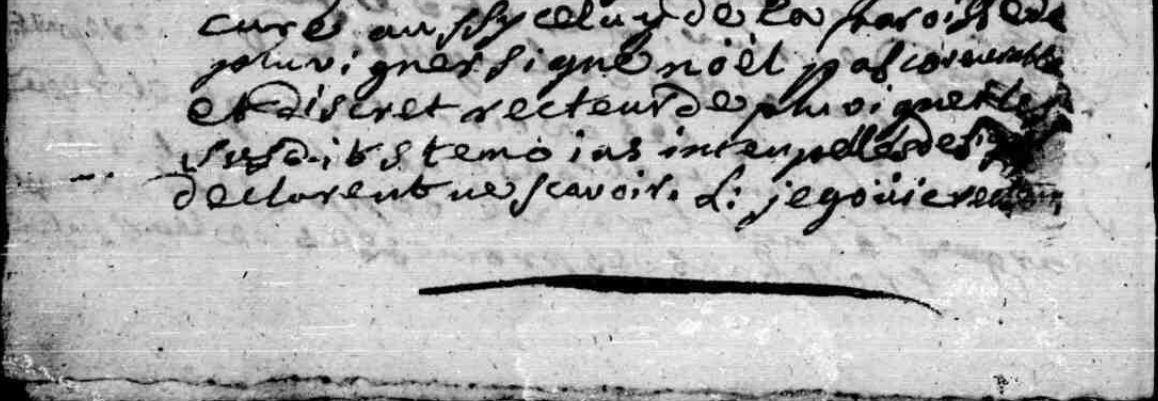 curé aussy celuy de la paroisse de
pluvigner signé noël pascō venerable
et discret recteur de pluvigner les
susdits temoins interpellés de signer
declarent ne scavoir. L: jegouic recteur